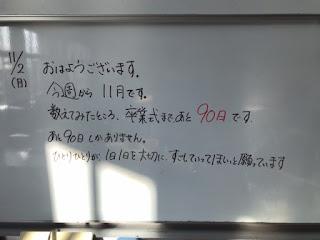 11/2
(月)
おはようございます。
今週から11月です。
数えてみたところ、卒業式まであと90日です。
あと90日しかありません。
ひとりひとりが、1日1日を大切に、すごしていってほしいと願っています